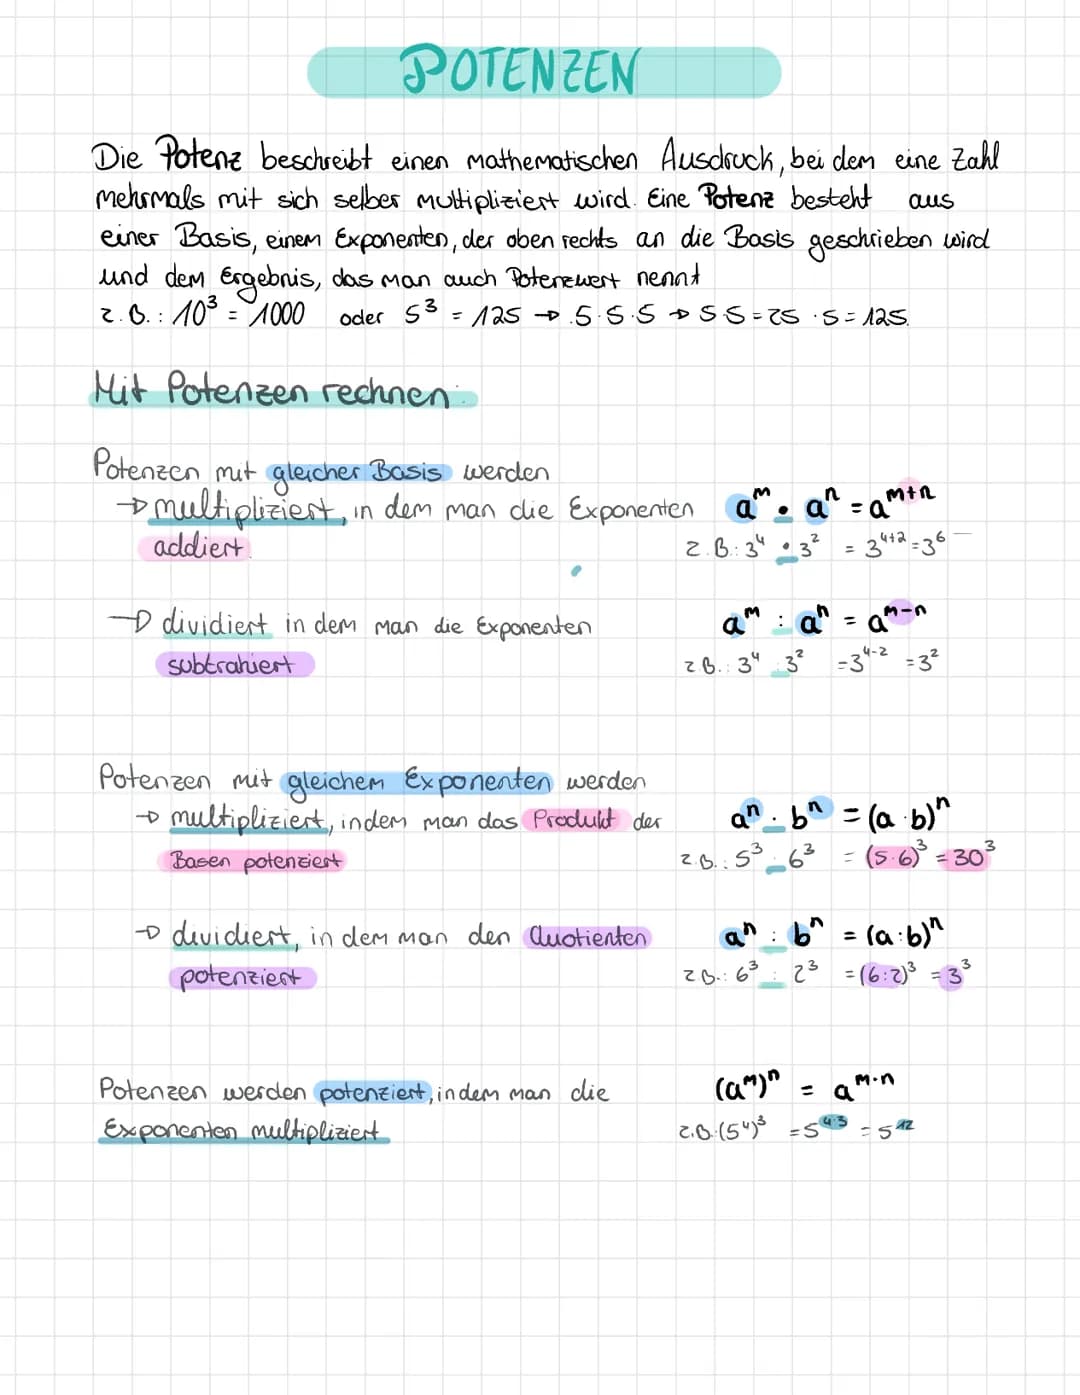 POTENZEN
Die Potenz beschreibt einen mathematischen Ausdruck, bei dem eine Zahl
mehrmals mit sich selber multipliziert wird. Eine Potenz besteht aus
einer Basis, einem Exponenten, der oben rechts an die Basis geschrieben wird
und dem Ergebnis, das man auch Potenzwert nennt
z.B.: 10³ = 1000 oder 5³ = 125 → 5·5·5 → 5·5=25 ·5=125.
Mit Potenzen rechnen:
Potenzen mit gleicher Basis werden
→ multipliziert, in dem man die Exponenten aᵐ · aⁿ = aᵐ⁺ⁿ
addiert. z.B.: 3⁴ · 3² = 3⁴⁺² = 3⁶
→ dividiert in dem man die Exponenten aᵐ : aⁿ = aᵐ⁻ⁿ
subtrahiert z.B.: 3⁴ : 3² = 3⁴⁻² = 3²
Potenzen mit gleichem Exponenten werden
→ multipliziert, indem man das Produkt der aⁿ · bⁿ = (a·b)ⁿ
Basen potenziert z.B.: 5³ · 6³ = (5·6)³ = 30³
→ dividiert, in dem man den Quotienten aⁿ : bⁿ = (a:b)ⁿ
potenziert z.B.: 6³ : 2³ = (6:2)³ = 3³
Potenzen werden potenziert, indem man die (aᵐ)ⁿ = aᵐ·ⁿ
Exponenten multipliziert z.B.: (5⁴)³ = 5⁴·³ = 5¹²